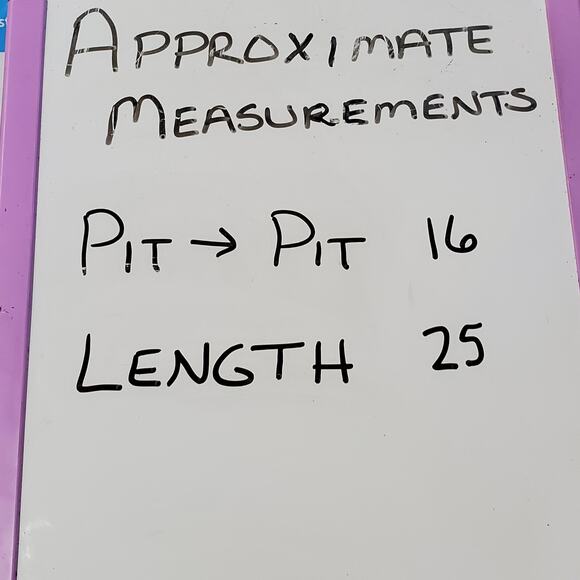 APPROXIMATE
MEASUREMENTS
PIT → PIT 16
LENGTH 25